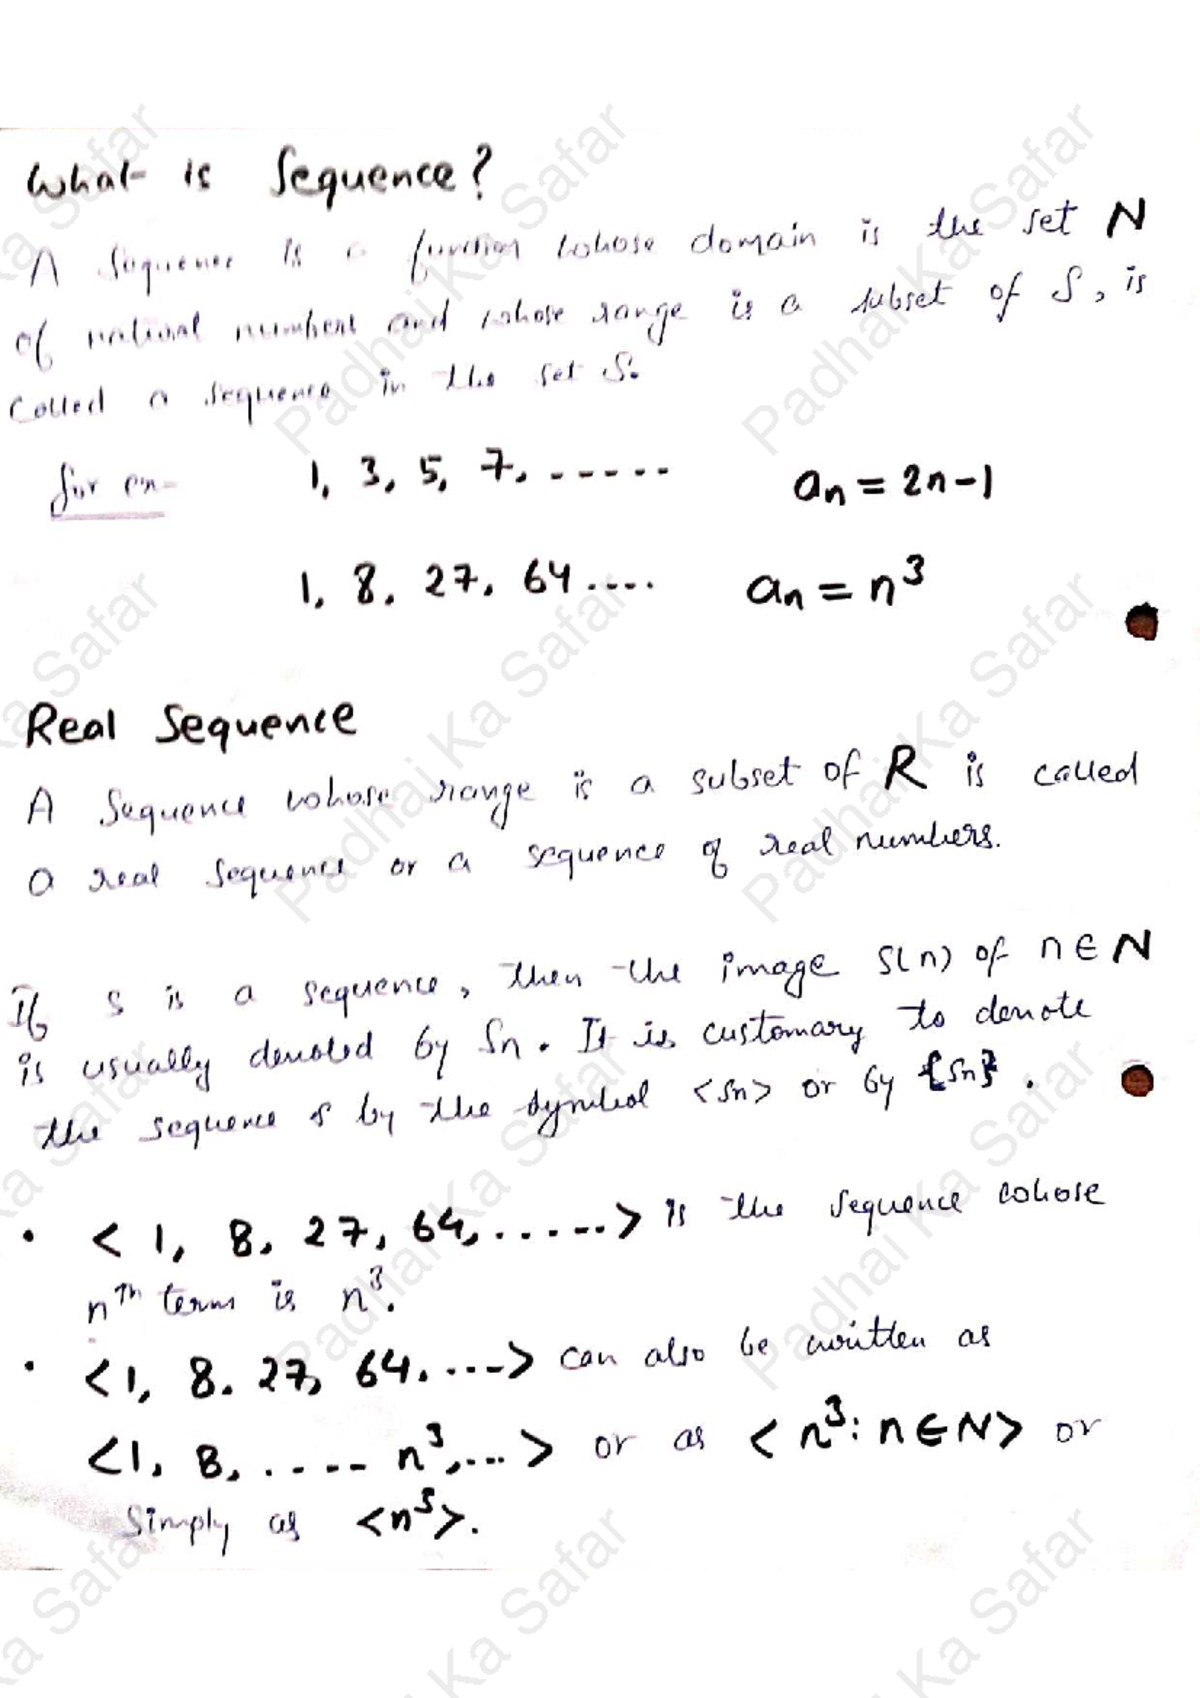 What is Sequence?
A Sequence is a function whose domain is the set N
of natural numbers and whose range is a subset of S, is
called a sequence in the set S.
for ex- 1, 3, 5, 7, ----- an = 2n-1
1, 8, 27, 64 .... an = n³
Real Sequence
A Sequence whose range is a subset of R is called
a real Sequence or a sequence of real numbers.
If s is a sequence, then the image s(n) of n ∈ N
is usually denoted by Sn. It is customary to denote
the sequence s by the symbol <sn> or by {Sn}.
• < 1, 8, 27, 64, ......> is the sequence whose
nTh term is n³.
• <1, 8. 27, 64. ---> can also be written as
<1, 8, .---- n³,...> or as < n³: n ∈ N> or
Simply as <n³>.
Padhai Ka Safar